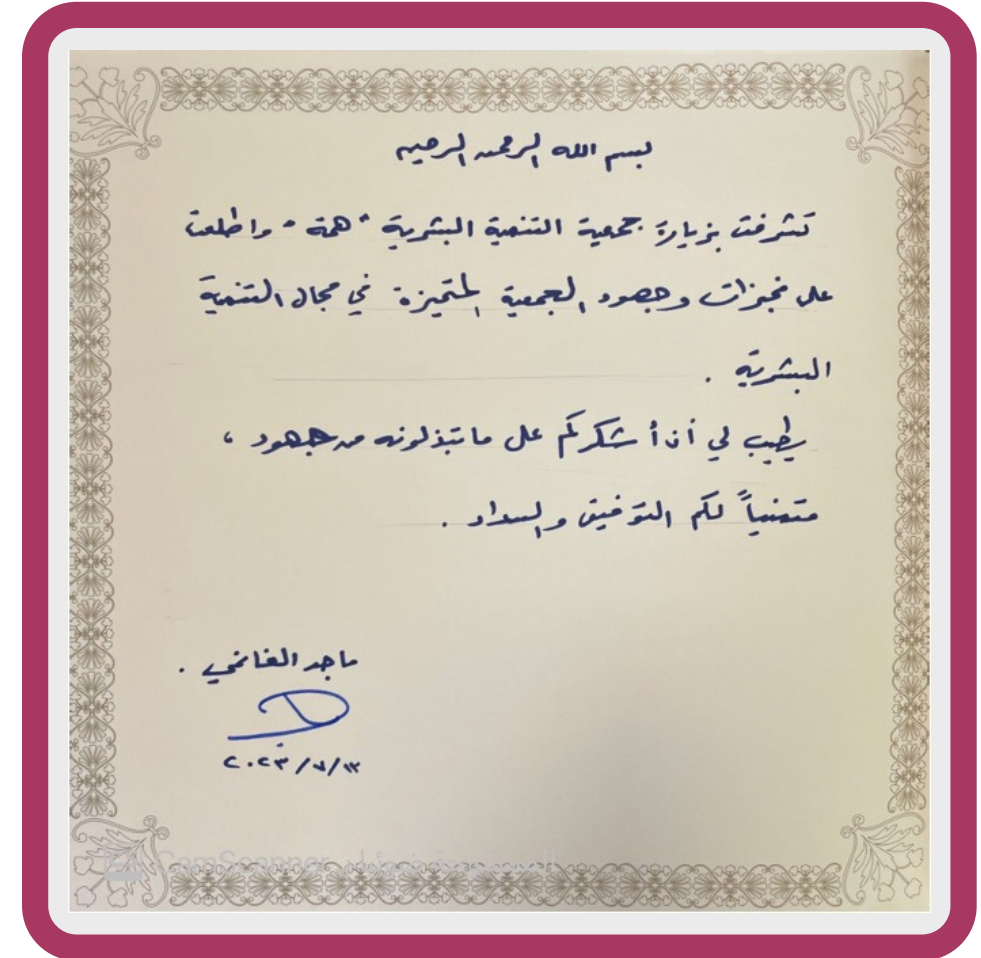 بسم الله الرحمن الرحيم
تشرفت بزيارة جمعية التنمية البشرية "همة" واطلعت
على منجزات وجهود الجمعية المتميزة في مجال التنمية
البشرية .
يطيب لي أن أشكركم على ما تبذلونه من جهود ،
متمنياً لكم التوفيق والسداد .
ماجد الغانمي .
٢٠٢٣/٧/١٣
CamScanner الممسوحة ضوئيا بـ